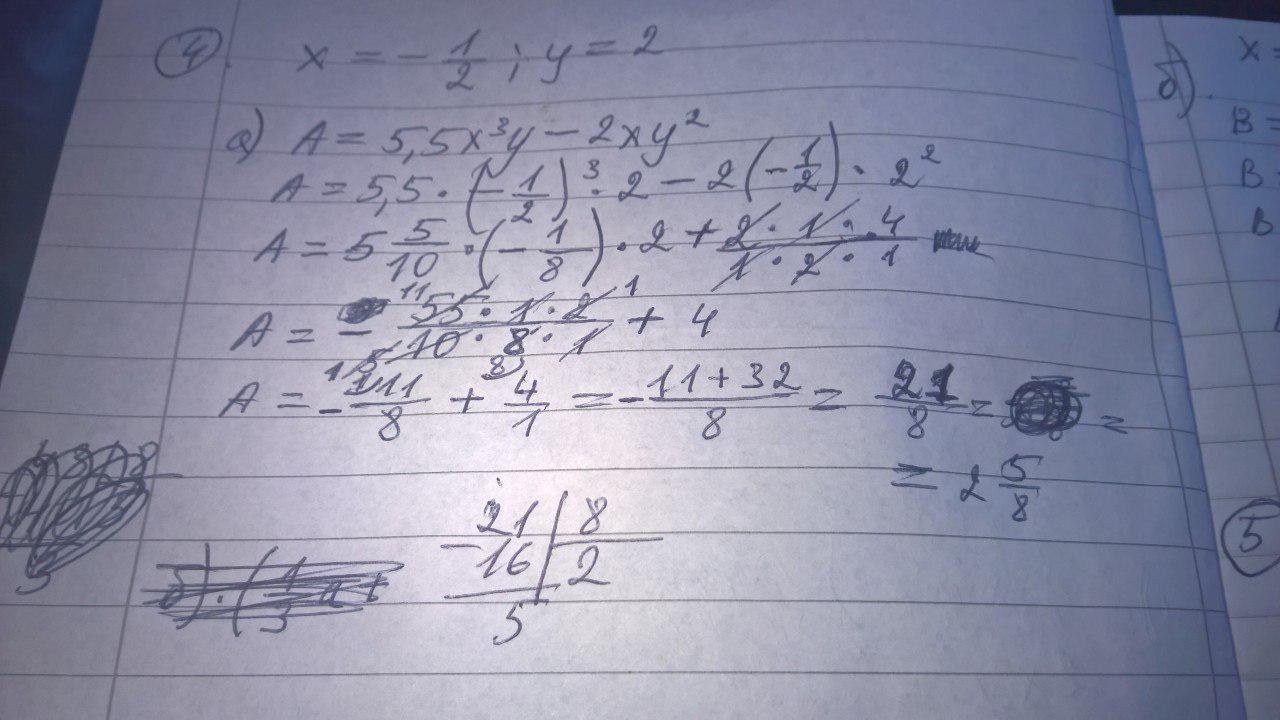 4. x = - 1/2 ; y = 2
а) A = 5,5x³y - 2xy²
A = 5,5 · (- 1/2)³ · 2 - 2(- 1/2) · 2²
A = 5 5/10 · (- 1/8) · 2 + 2 · 1 · 4 / 1 · 2 · 1
A = - 55 · 1 · 2 / 10 · 8 · 1 + 4
A = - 11/8 + 4/1 = - 11 + 32 / 8 = 21/8 = =
= 2 5/8
21 | 8
- 16 | 2
5
б)
x =
B =
B =
B
5